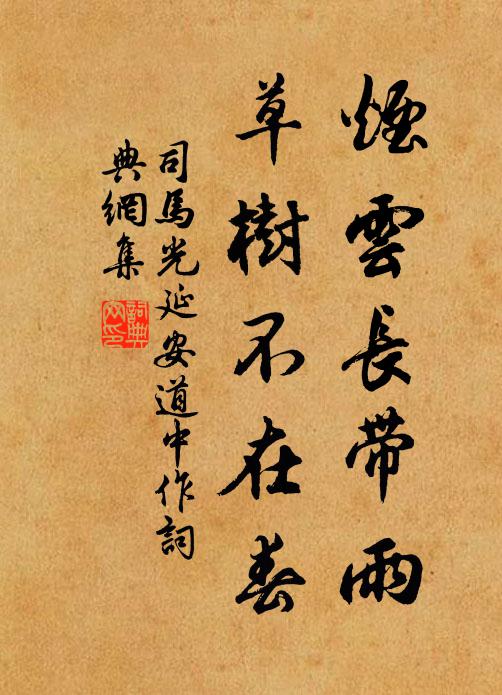 煙雲長帶雨
草樹不在春
司馬光延安道中作詞
典網集
詞典
网印